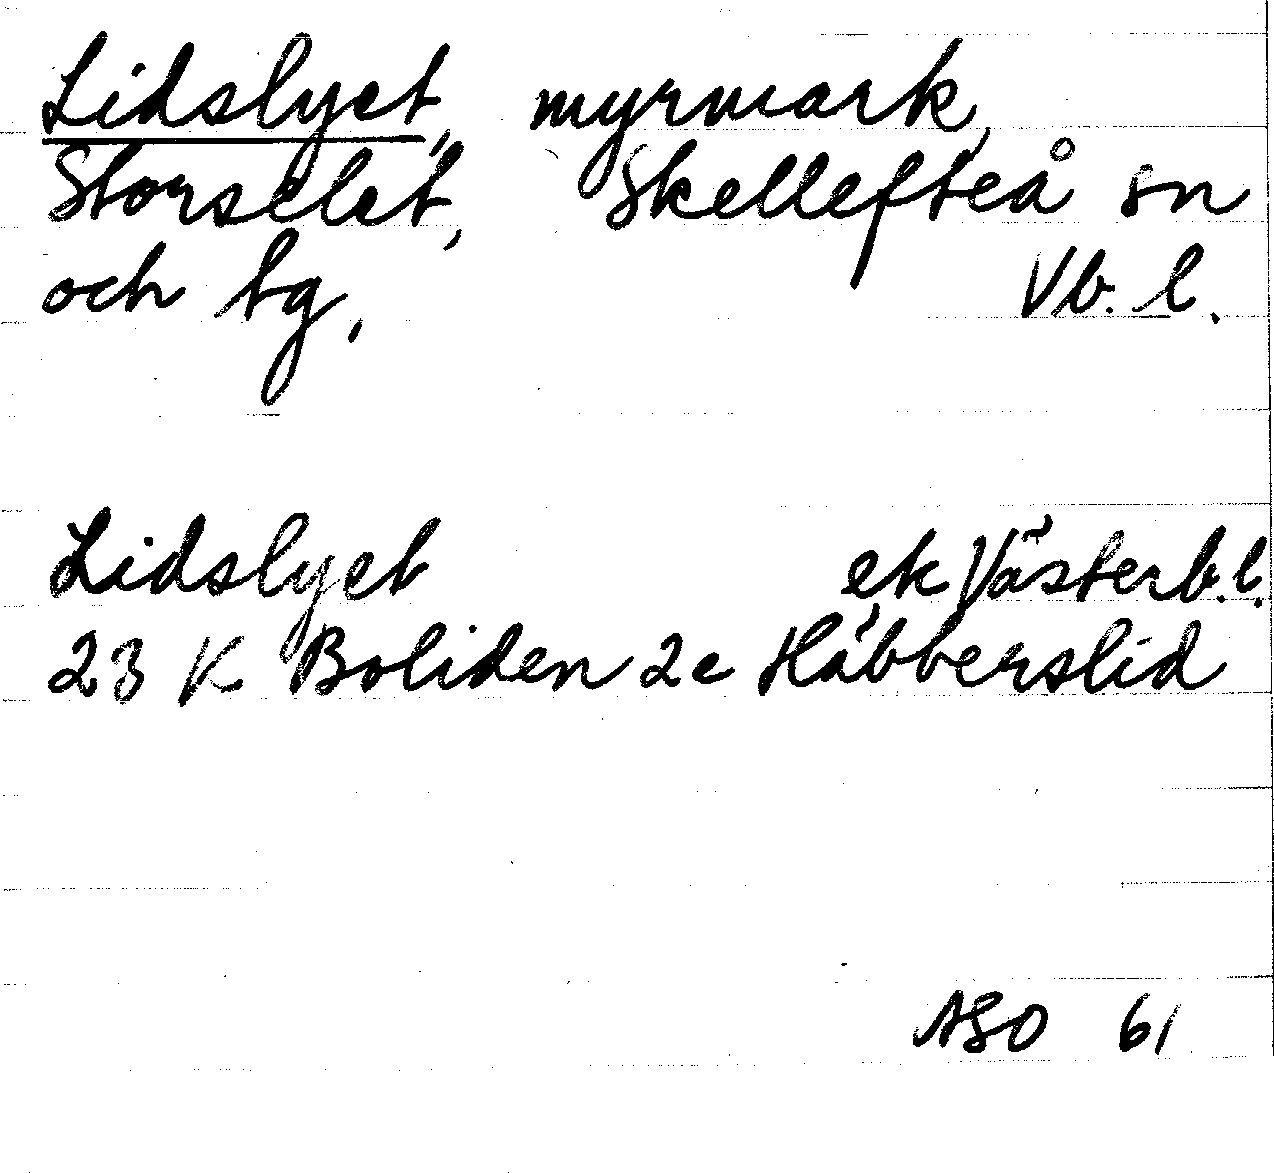 Lidslyet, myrmark,
Storselet, Skellefteå sn
och tg, Vb. l.
Lidslyet ek Västerb. l.
23 K Boliden 2c Häbberslid
ASO 61